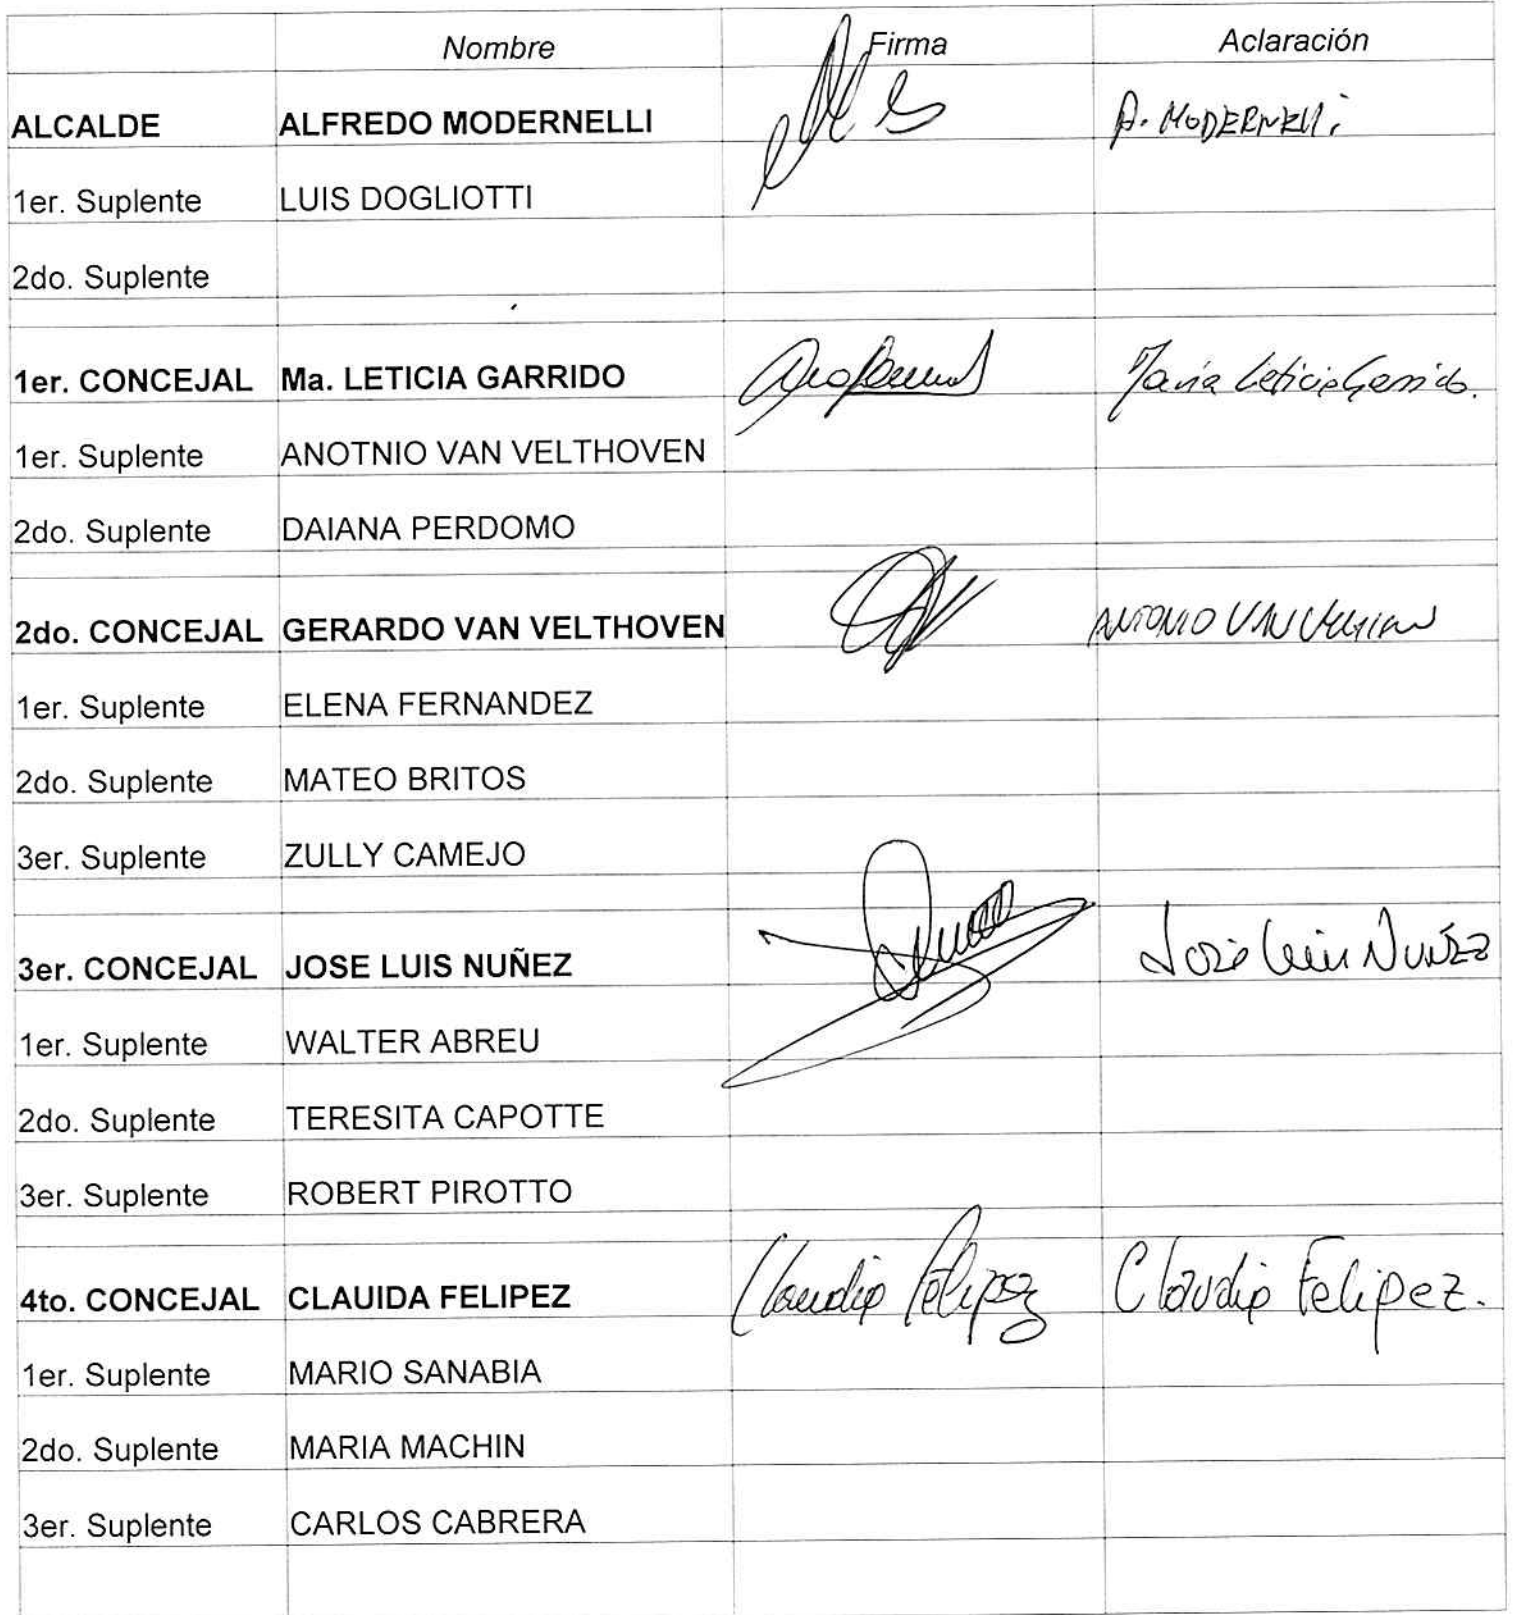 Nombre Firma Aclaración
ALCALDE ALFREDO MODERNELLI A. MODERNELLi
1er. Suplente LUIS DOGLIOTTI
2do. Suplente
1er. CONCEJAL Ma. LETICIA GARRIDO María Leticia Garrido.
1er. Suplente ANOTNIO VAN VELTHOVEN
2do. Suplente DAIANA PERDOMO
2do. CONCEJAL GERARDO VAN VELTHOVEN ANTONIO VAN
1er. Suplente ELENA FERNANDEZ
2do. Suplente MATEO BRITOS
3er. Suplente ZULLY CAMEJO
3er. CONCEJAL JOSE LUIS NUÑEZ José Luis Nuñez
1er. Suplente WALTER ABREU
2do. Suplente TERESITA CAPOTTE
3er. Suplente ROBERT PIROTTO
4to. CONCEJAL CLAUIDA FELIPEZ Claudia Felipez Claudia Felipez.
1er. Suplente MARIO SANABIA
2do. Suplente MARIA MACHIN
3er. Suplente CARLOS CABRERA